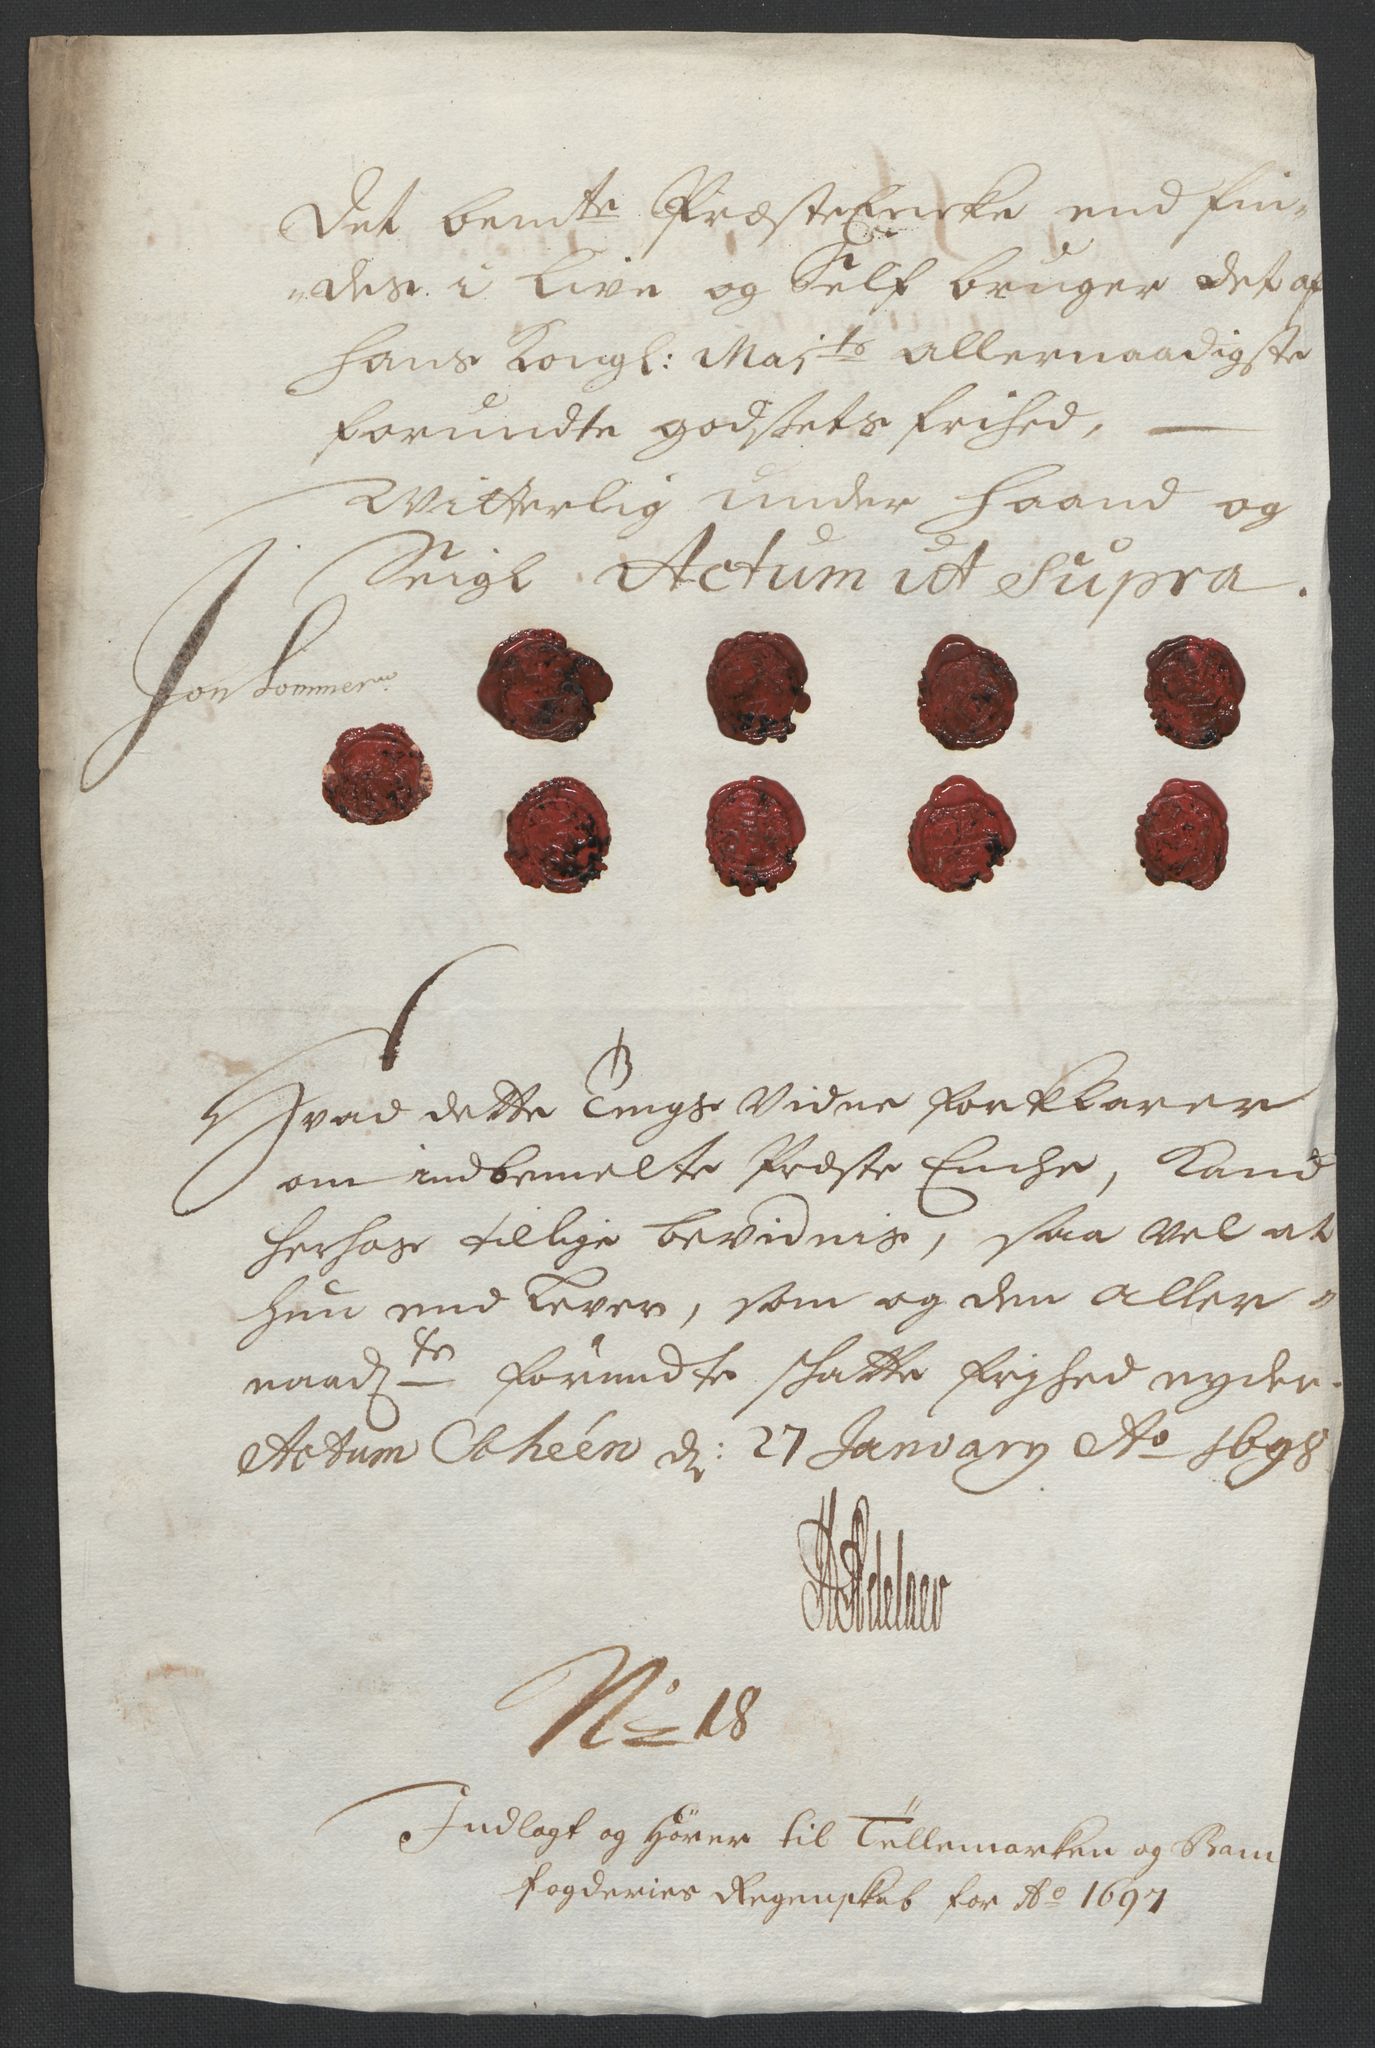 Det bemte Præste Encke end fin„
„des i Live og Self bruger det af
hans Kongl: Majts allernaadigste
forundte godssets frihed,
Witterlig under haand og
Seigl Actum ut Supra.
Jon Sommer
Hvad dette Tings Vidne forklarer
om indbemelte Præste Enche, Kand
herhos tillige bevidnis, saa vel at
hun end Lever, som og den aller„
naadste forundte schatte frjhed nyder.
Actum Scheén d: 27 January Ao 1698
HAdelaer
No 18
Indlagt og Hörer til Tellemarken og Bam
fogderies Regenskab for Ao 1697